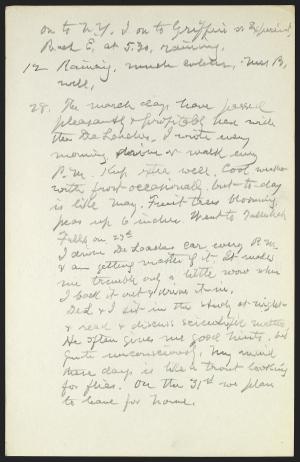 on to N.Y. I on to Griffin
Back E. at 5.30, raining.
12 Raining, much colder. Mrs B.
well.
28. The march days have passed
pleasantly & profitably here with
the De Loaches. I write every
morning, drive or walk every
P.M. Keep well. Cool weather
with frost occasionally, but to-day
is like May. Fruit trees blooming,
peas up 6 inches. Went to Tallulah
Falls on 23rd
I drive De Loaches car every P.M.
& am getting master of it. It makes
me tremble only a little now when
I back it out & drive it in.
DeL & I sit in the study at night
& read & discuss scientific matters.
He often gives me good hints, but
quite unconsciously. My mind
these days is like a trout looking
for flies. On the 31st we plan
to leave for home.